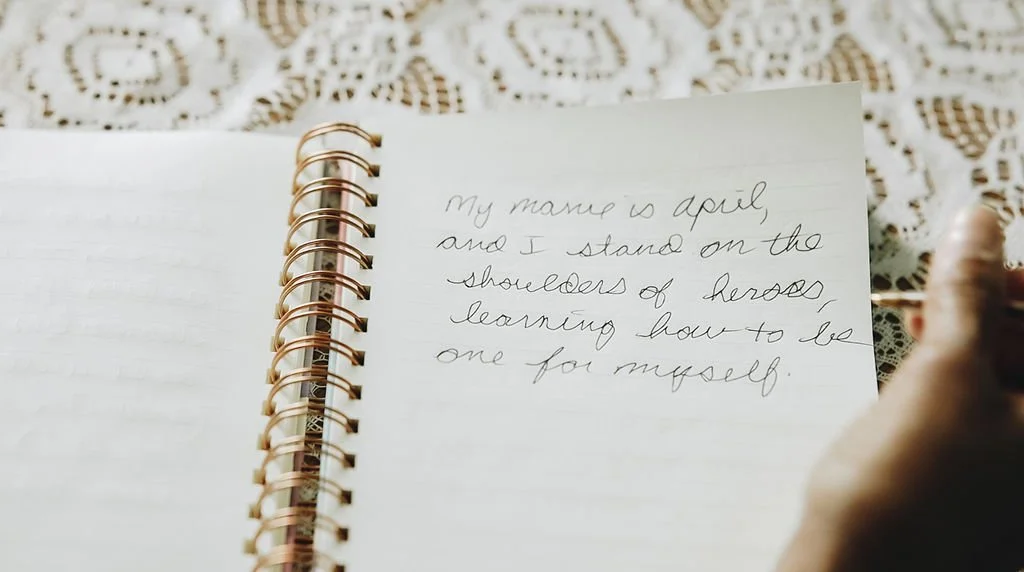 My name is april,
and I stand on the
shoulders of heroes,
learning how to be
one for myself.